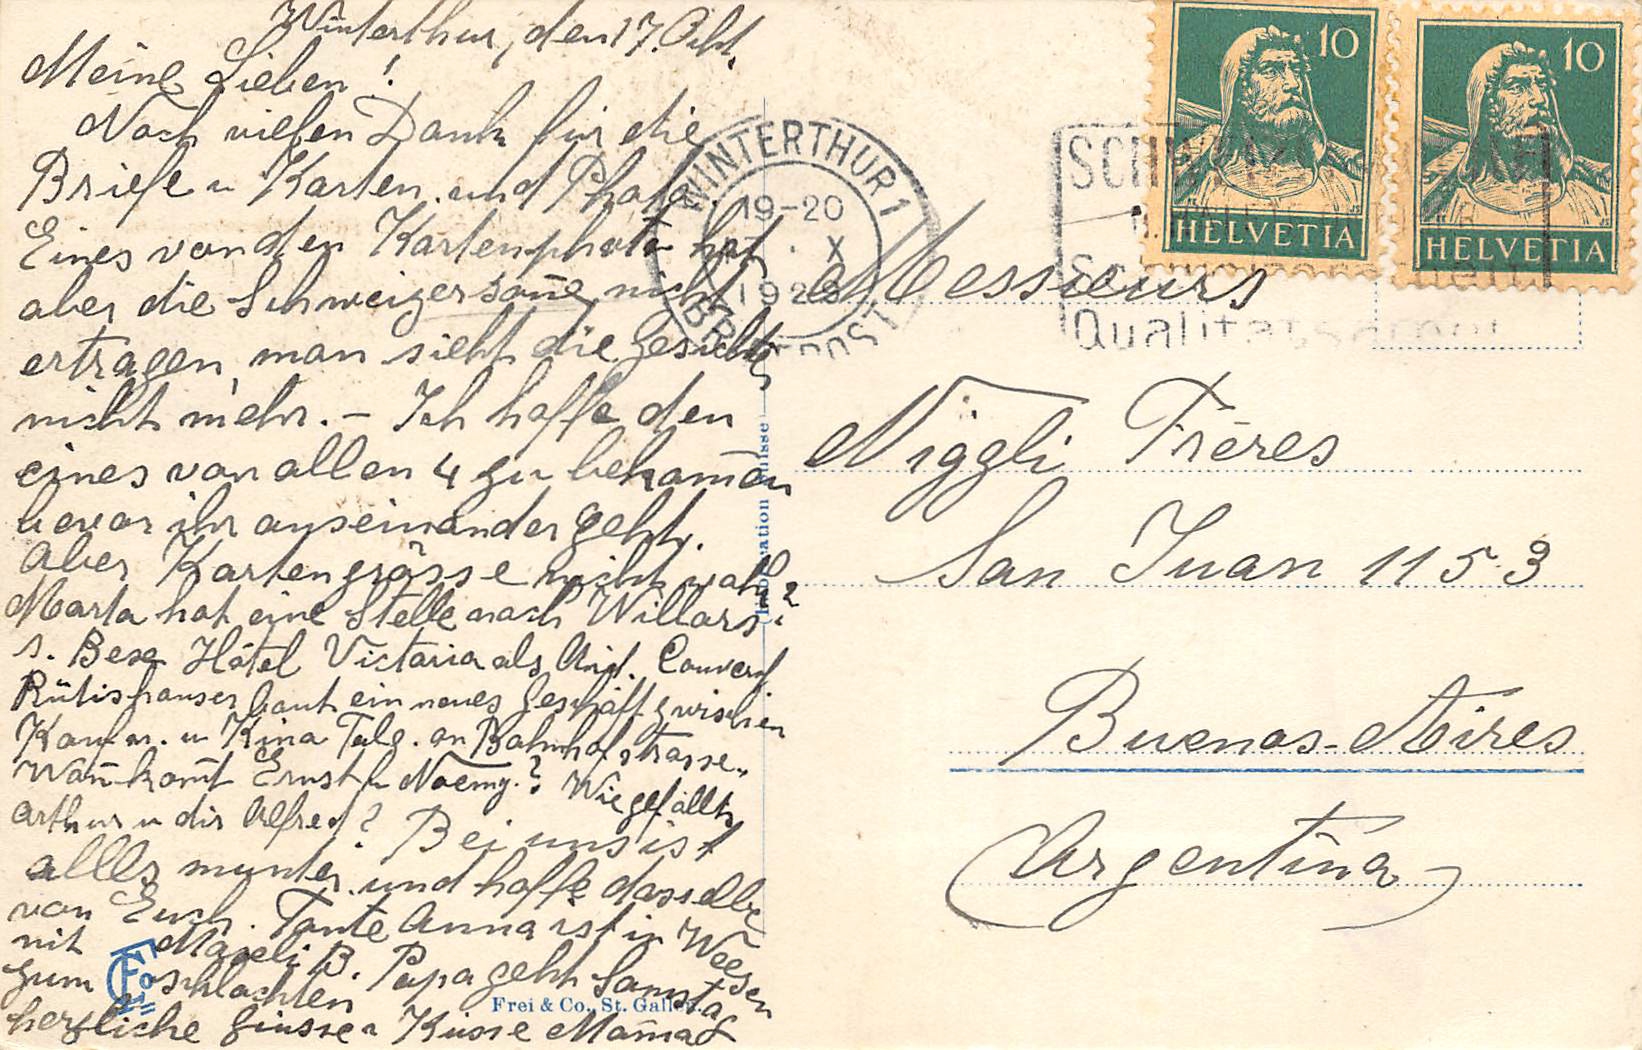 Winterthur, den 17. Okt.
Meine Lieben!
Noch vielen Dank für die
Briefe u Karten und Photo.
Eines von den Kartenphoto hat
aber die Schweizersonne nicht
ertragen, man sieht die Gesichter
nicht mehr. – Ich hoffe den
eines von allen 4 zu bekomen
bevor ihr auseinander geht.
Aber Kartengrösse nicht wahr?
Marta hat eine Stelle nach Villars
s. Bex Hôtel Victoria als
Rütishauser baut ein neues Geschäft zwischen
u Kina an Bahnhofstrasse.
Wan komt Ernst u Noemy? Wie gefällts
Arthur u dir Alfred? Bei uns ist
alles munter und hoffe dasselbe
von Euch. Tante Anna ist in Weesen
mit B. Papa geht Samstag
zum
herzliche Grüsse u Küsse Mama
WINTERTHUR 1
19-20
X
1928
BRIEFPOST
10
HELVETIA
10
HELVETIA
Qualitäts
Messieurs
Niggli Frères
San Juan 1153
Buenos-Aires
Argentina
Frei & Co., St. Gallen.